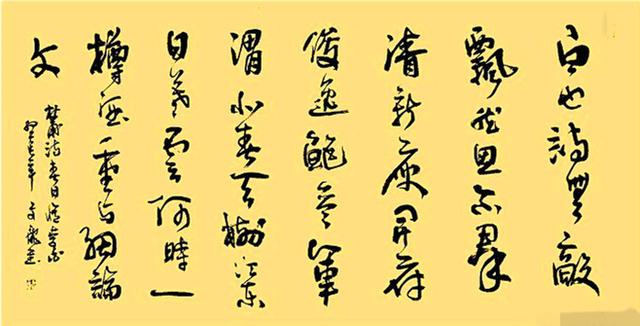 白也詩無敵
飄然思不羣
清新庾開府
俊逸鮑參軍
渭北春天樹江東
日暮雲何時一
樽酒重与細論
文
杜甫詩春日憶李白
年